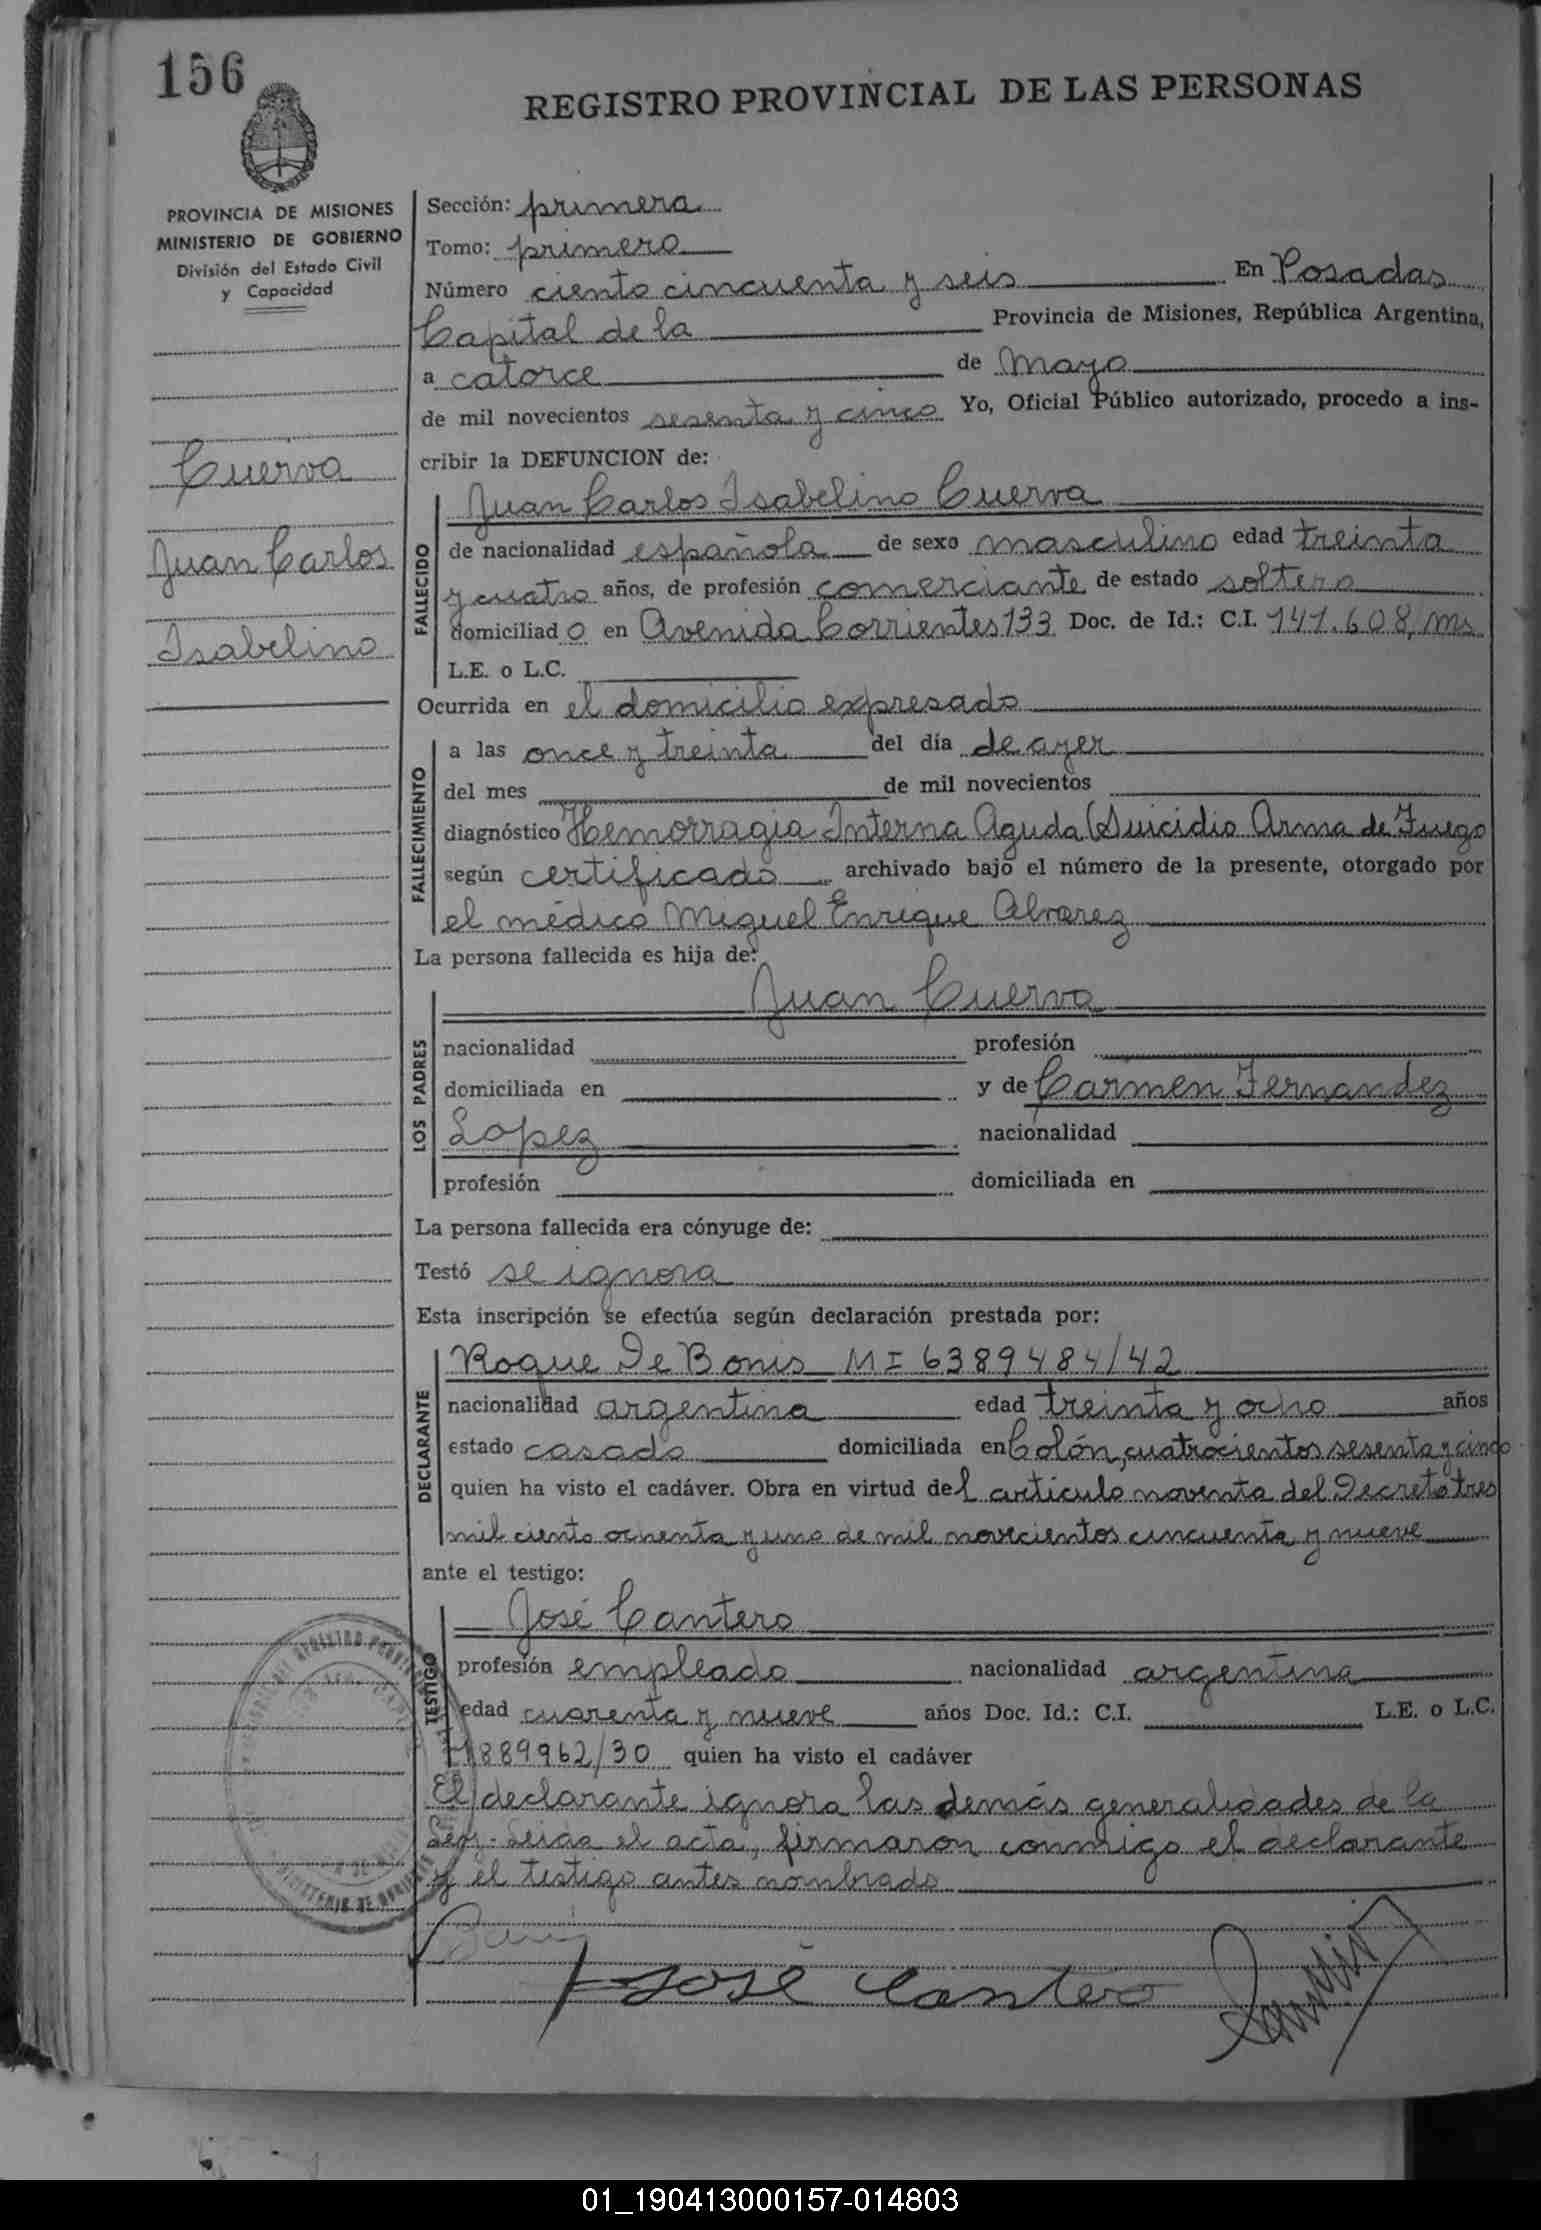 156
REGISTRO PROVINCIAL DE LAS PERSONAS
PROVINCIA DE MISIONES
MINISTERIO DE GOBIERNO
División del Estado Civil
y Capacidad
Cuerva
Juan Carlos
Isabelino
Sección: primera
Tomo: primero
Número ciento cincuenta y seis En Posadas
Capital de la Provincia de Misiones, República Argentina,
a catorce de Mayo
de mil novecientos sesenta y cinco Yo, Oficial Público autorizado, procedo a ins-
cribir la DEFUNCION de:
FALLECIDO
Juan Carlos Isabelino Cuerva
de nacionalidad española de sexo masculino edad treinta
y cuatro años, de profesión comerciante de estado soltero
domiciliado en Avenida Corrientes 133 Doc. de Id.: C.I. 141.608, ms
L.E. o L.C.
Ocurrida en el domicilio expresado
FALLECIMIENTO
a las once y treinta del día de ayer
del mes de mil novecientos
diagnóstico Hemorragia Interna Aguda (Suicidio Arma de Fuego
según certificado archivado bajo el número de la presente, otorgado por
el médico Miguel Enrique Alvarez
La persona fallecida es hija de:
LOS PADRES
Juan Cuerva
nacionalidad profesión
domiciliada en y de Carmen Fernandez
Lopez nacionalidad
profesión domiciliada en
La persona fallecida era cónyuge de:
Testó se ignora
Esta inscripción se efectúa según declaración prestada por:
DECLARANTE
Roque De Bonis MI 6389484/42
nacionalidad argentina edad treinta y ocho años
estado casado domiciliada en Colón, cuatrocientos sesenta y cinco
quien ha visto el cadáver. Obra en virtud del articulo noventa del Decreto tres
mil ciento ochenta y uno de mil novecientos cincuenta y nueve
ante el testigo:
TESTIGO
José Cantero
profesión empleado nacionalidad argentina
edad cuarenta y nueve años Doc. Id.: C.I. L.E. o L.C.
1889962/30 quien ha visto el cadáver
El declarante ignora las demás generalidades de la
Ley. Leida el acta, firmaron conmigo el declarante
y el testigo antes nombrado
José Cantero
01_190413000157-014803